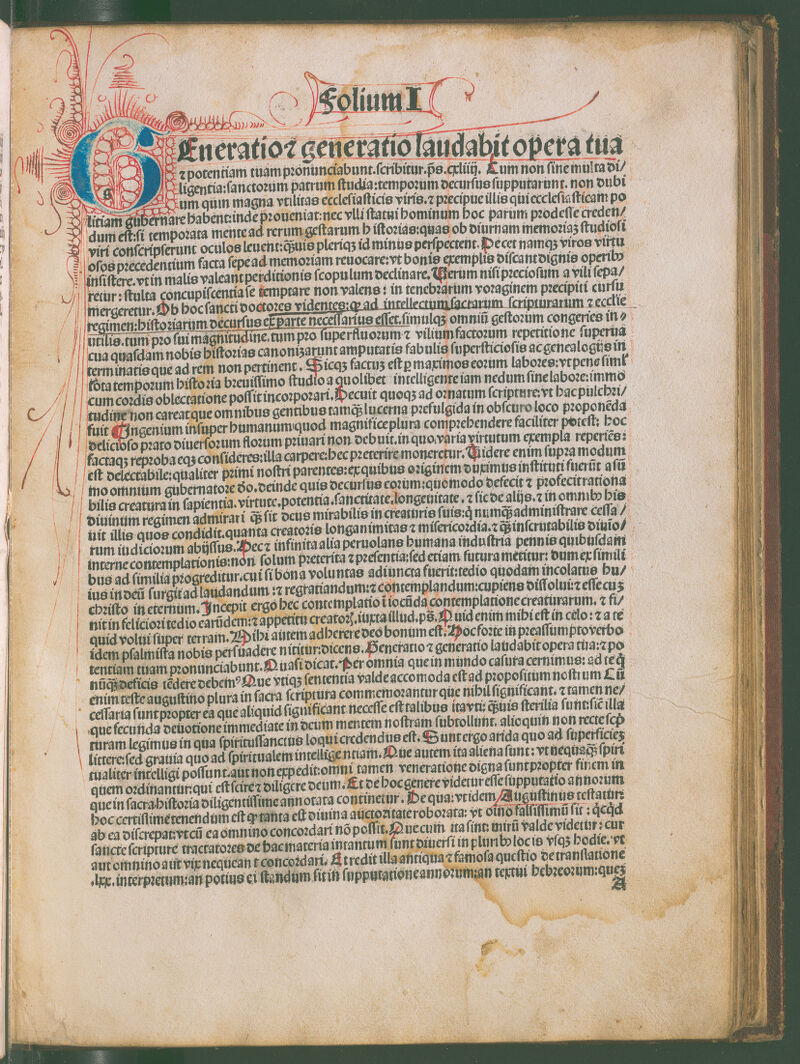 Folium I
GEneratio ⁊ generatio laudabit opera tua
⁊ potentiam tuam pronunciabunt. scribitur. p̄s. cxliiij. Cum non sine multa di/
ligentia: sanctorum patrum studia: temporum decursus supputarunt. non dubi
um quin magna vtilitas ecclesiasticis viris. ⁊ precipue illis qui ecclesiasticam po
litiam gubernare habent: inde proueniat: nec vlli statui hominum hoc parum prodesse creden/
dum est: si temporata mente ad rerum gestarum historias: quas ob diurnam memoriaꝫ studiosi
viri conscripserunt oculos leuent: qͣꝫuis pleriqꝫ id minus perspectent. Decet namqꝫ viros virtu
osos precedentium facta sepe ad memoriam reuocare: vt bonis exemplis discant dignis operibꝰ
insistere. vt in malis valeant perditionis scopulum declinare. Verum nisi preciosum a vili sepa/
retur: stulta concupiscentia se temptare non valens: in tenebrarum voraginem precipiti cursu
mergeretur. Ob hoc sancti doctores videntes: ꝙ ad intellectum sacrarum scripturarum ⁊ ecclie
regimen: historiarum decursus ex parte necessarius esset. simulqꝫ omniū gestorum congeries in
utilis. tum pro sui magnitudine. tum pro superfluorum ⁊ vilium factorum repetitione superua
cua quasdam nobis historias canonizarunt amputatis fabulis supersticiosis ac genealogiis in
terminatis que ad rem non pertinent. Sicqꝫ factuꝫ est ꝑ maximos eorum labores: vt pene siml̓
tota temporum historia breuissimo studio a quolibet intelligente iam nedum sine labore: immo
cum cordis oblectatione possit incorporari. Decuit quoqꝫ ad ornatum scripture: vt hac pulchri/
tudine non careat que omnibus gentibus tamqꝫ lucerna prefulgida in obscuro loco proponēda
fuit Ingenium insuper humanum quod magnifice plura comprehendere faciliter potest: hoc
delicioso prato diuersorum florum priuari non debuit. in quo varia virtutum exempla reperiēs:
factaqꝫ reproba eqꝫ consideres: illa carpere: hec preterire moneretur. Videre enim supra modum
est delectabile: qualiter primi nostri parentes: ex quibus originem duximus instituti fuerūt a sūmo
omnium gubernatore deo. deinde quis decursus eorum: quomodo defecit ⁊ profecit rationa
bilis creatura in sapientia. virtute. potentia. sanctitate. longeuitate. ⁊ sic de alijs. ⁊ in omnibꝰ his
diuinum regimen admirari qͣꝫ sit deus mirabilis in creaturis suis: q̄ numqͣꝫ administrare cessa/
uit illis quos condidit. quanta creatoris longanimitas ⁊ misericordia. ⁊ qͣꝫ inscrutabilis diuio/
rum iudiciorum abyssus. Hec ⁊ infinita alia peruolans humana industria pennis quibusdam
interne contemplationis: non solum preterita ⁊ presentia: sed etiam futura metitur: dum ex simili
bus ad similia progreditur. cui si bona voluntas adiuncta fuerit: tedio quodam incolatus hu/
ius in deū surgit ad laudandum: ⁊ regratiandum: ⁊ contemplandum: cupiens dissolui: ⁊ esse cuꝫ
christo in eternum. Incepit ergo hec contemplatio i iocūda contemplatione creaturarum. ⁊ fi/
nit in feliciori tedio earūdem: ⁊ appetitu creatorꝭ. iuxta illud. p̄s. Quid enim mihi est in celo: ⁊ a te
quid volui super terram. Mihi autem adherere deo bonum est. Hoc forte in preassumpto verbo
idem psalmista nobis persuadere nititur: dicens. Generatio ⁊ generatio laudabit opera tua: ⁊ po
tentiam tuam pronunciabunt. Quasi dicat. Per omnia que in mundo casura cernimus: ad te q̄
nūqͣꝫ deficis tēdere debemꝰ Que vtiqꝫ sententia valde accomoda est ad propositum nostrum Cū
enim teste augustino plura in sacra scriptura commemorantur que nihil significant. ⁊ tamen ne/
cessaria sunt propter ea que aliquid significant necesse est talibus ita vti: qͣꝫuis sterilia sunt: sic illa
que fecunda deuotione immediate in deum mentem nostram subtollunt. alioquin non recte scp̄
turam legimus in qua spiritussanctus loqui credendus est. Sunt ergo arida quo ad superficieꝫ
littere: sed grauia quo ad spiritualem intelligentiam. Que autem ita aliena sunt: vt nequaqͣꝫ spiri
tualiter intelligi possunt. aut non expedit: omni tamen veneratione digna sunt propter finem in
quem ordinantur: qui est scire ⁊ diligere deum. Et de hoc genere videtur esse supputatio annorum
que in sacra historia diligentissime annotata continetur. De qua: vt idem Augustinus testatur:
hoc certissime tenendum est ꝙ tanta est diuina auctoritate roborata: vt oīno falsissimū sit: qͥcqͥd
ab ea discrepat: vt cū ea omnino concordari nō possit. Que cum ita sint: mirū valde videtur: cur
sancte scripture tractatores de hac materia in tantum sunt diuersi in pluribꝰ locis vsqꝫ hodie. vt
aut omnino aut vix nequeant concordari. Et redit illa antiqua ⁊ famosa questio de translatione
.lxx. interpretum: an potius ei standum sit in supputatione annorum: an textui hebreorum: queꝫ
A